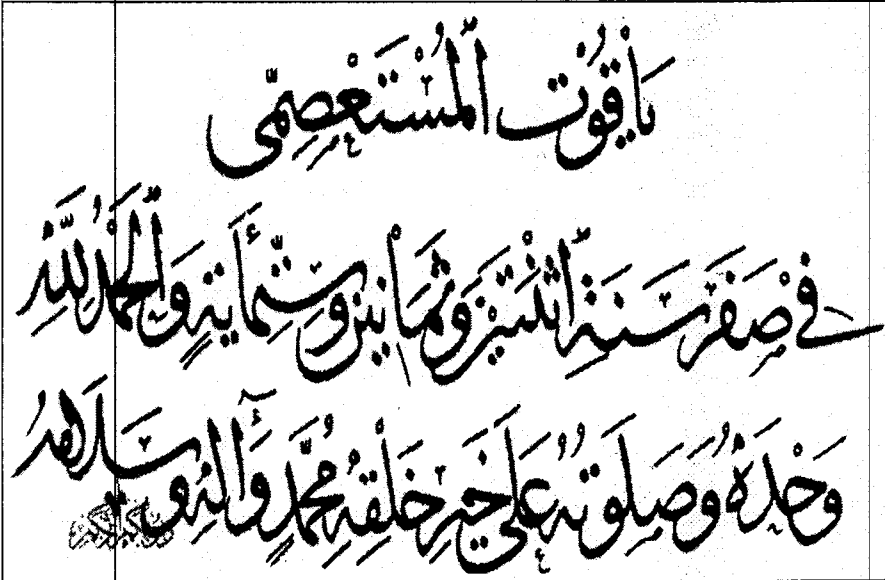 يَاقُوْت اَلْمُسْتَعْصِمِّى
فِي صَفَرْ سَنَةِ اثْنَتَيْنِ وَثَمَانِيْنَ وَسِتِّمَأيَةٍ وَالْحَمْدُ لِلّٰهِ
وَحْدَهُ وَصَلَوتُهُ عَلَى خَيْرِ خَلْقِهِ مُحَمَّدٍ وَآلِهِ وَسَلَامُهُ